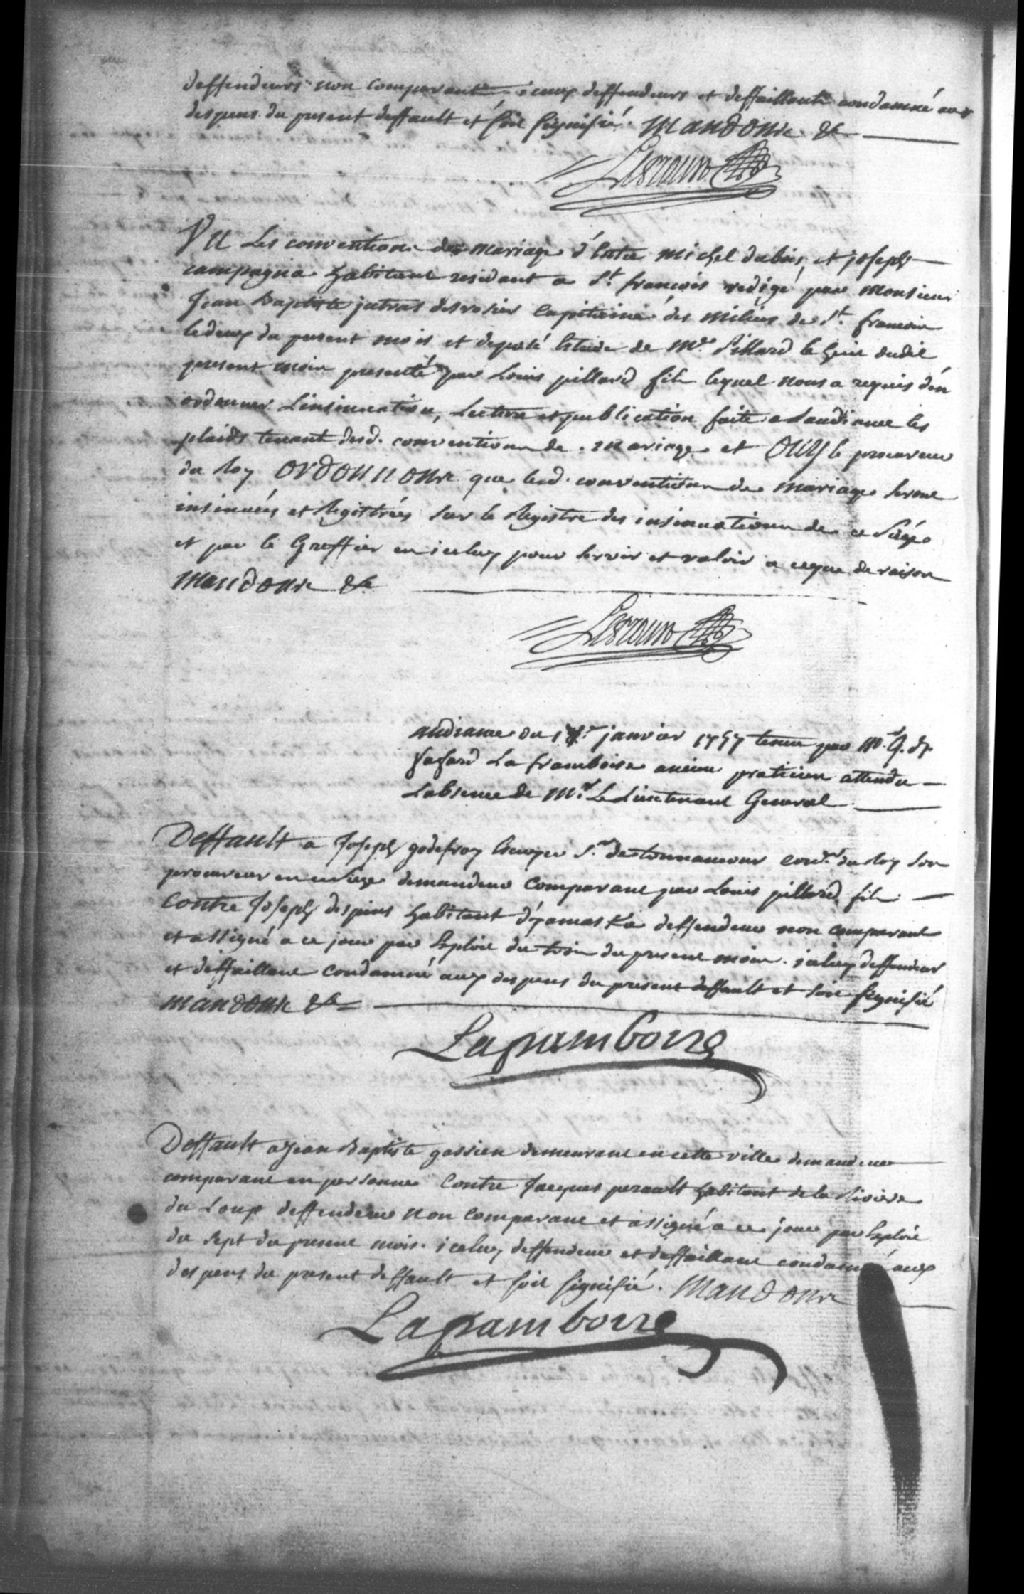 deffendeurs non comparants iceux deffendeurs et deffaillants condamné aux
despens du present deffault et soit signifié. Mandons &a
VU Les conventions de mariage d'Entre Michel dubois et joseph
campagna habitans residant a St. francois redigé par Monsieur
Jean Baptiste jutras desrosier Capitaine des milices de St. francois
le deux du present mois et deposé Estude de Me. Pillard le dudit
present mois presenté par Louis pillard fils lequel nous a requis d'en
ordonner L'insinuation, Lecture et publication faite a Laudiance les
plaids tenant desd. conventions de mariage et OUY le procureur
du Roy ORDONNONS que lesd. conventions de mariage seront
insinuées et Registrées sur le Registre des insinuations de ce Siege
et par le Greffier en iceluy pour servir et valoir a ce que de raison
Mandons &a
Audiance du janvier 1757 tenue par Mr.
fafard La framboise ancien praticien attendu
Labsence de Mr. Le Lieutenant General
Deffault a Joseph godefroy Ecuyer Sr. de tonnancour conr. du Roy son
procureur en ce Siege demandeur comparant par Louis pillard fils
Contre Joseph despins habitant d'yamaska deffendeur non comparant
et assigné a ce jour par Exploit du trois du present mois. iceluy deffendeur
et deffaillant condamné aux despens du present deffault et soit signifié
Mandons &a
Laframboise
Deffault a Jean Baptiste gossien demeurant en cette ville demandeur
comparant en personne Contre Jacques perault habitant de la Riviere
du Loup deffendeur non comparant et assigné a ce jour par Exploit
du sept du present mois. iceluy deffendeur et deffaillant condamné aux
despens du present deffault et soit signifié. Mandons
Laframboise